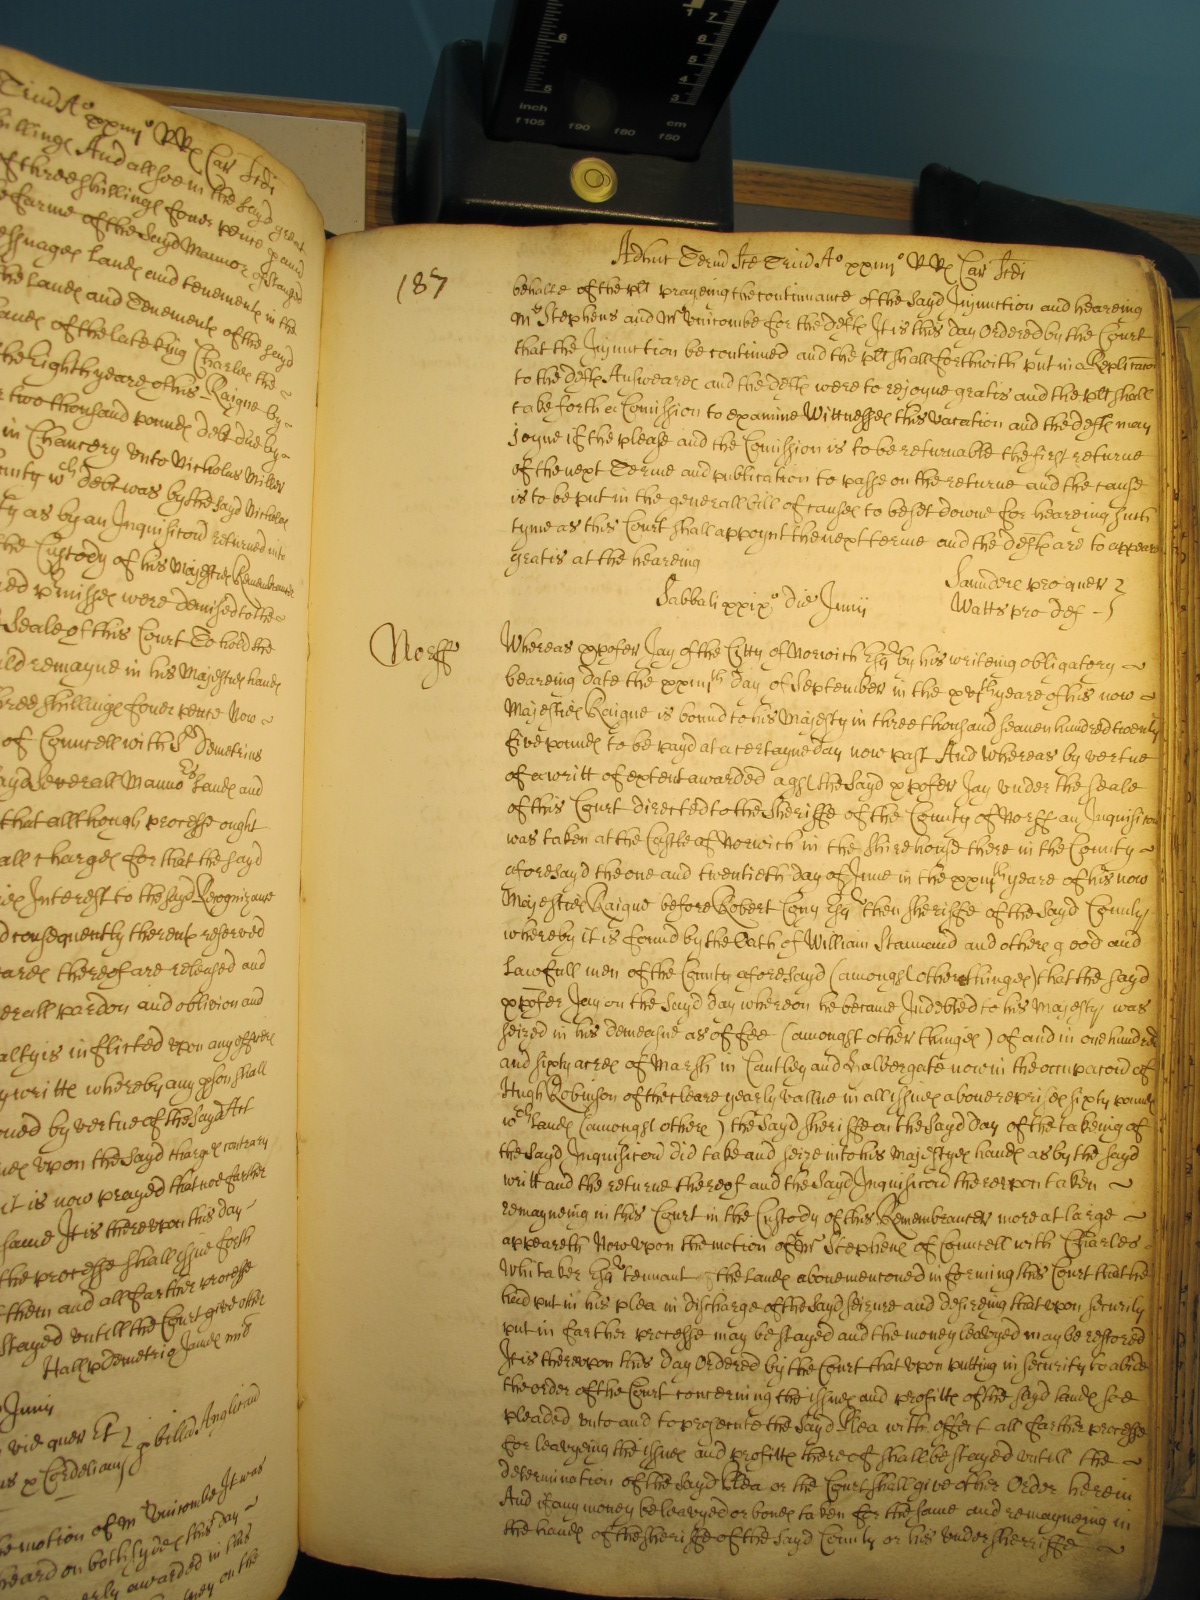 inch
cm
f105 f90 f80 f50
6
5
7
6
5
4
3
Trin Ao xxiiijo RRs Car Scdi
shillings And allsoe in the sayd great
of three shillings fower pence
farme of the sayd Mannor of
Messuages Lands and tenements in the
the Lands and Tenements of the sayd
Lands of the late King Charles the
the Eighth yeare of his Raigne by
two thousand pounds debt due by
in Chancery unto Nicholas Miller
wch debt was by the sayd Nicholas
as by an Inquisicon returned into
the Custody of his Majesties Remembrancer
pmisses were demised to the
Seale of this Court To hold the
remayne in his Majesties hands
three shillings fower pence Now
of Councell with Sr Demetrius
sayd severall Manno rs Lands and
that allthough processe ought
all charges for that the sayd
Interest to the sayd Recognizance
consequently the rents reserved
thereof are released and
generall pardon and oblivion and
is inflicted upon any officer
writts whereby any pson shall
by vertue of the sayd Act
upon the sayd charges contrary
it is now prayed that noe farther
same It is thereupon this day
the processe shall issue forth
them and all farther processe
stayed untill the Court give other
Hall p Demetrio James mil
Junij
vid quer Et p billa Anglican
x Cordelians
motion of Mr Unicombe It was
heard on both sydes this day
awarded in this
on the
187
Adhuc Termi Sce Trin Ao xxiiijo RRs Car Scdi
behalfe of the plt prayeing the continuance of the sayd Injunction and heareing
Mr Stephens and Mr Unicombe for the defts It is this day Ordered by the Court
that the Injunction be continued and the plt shall forthwith put in a Replicacon
to the defts Answeares and the defts were to rejoyne gratis and the plt shall
take forth a Comission to examine Wittnesses this vacation and the defts may
joyne if the please and the Comission is to be returnable the first returne
of the next Terme and publication to passe on the returne and the cause
is to be put in the generall bill of causes to be set downe for heareing such
tyme as this Court shall appoynt the next terme and the defts are to appeare
gratis at the heareing
Saunders pro quer
Watts pro def
Sabbati xxixo die Junij
Norff
Whereas xpofer Jay of the Citty of Norwich Esqr by his writeing obligatory
beareing date the xxiiijth day of September in the xvth yeare of his now
Majesties Raigne is bound to his Majesty in three thousand seaven hundred twenty
five pounds to be payd at a certayne day now past And whereas by vertue
of a writt of extent awarded agst the sayd xpofer Jay under the seale
of this Court directed to the Sheriffe of the County of Norff an Inquisicon
was taken at the Castle of Norwich in the Shirehouse there in the County
aforesayd the one and twentieth day of June in the xxiiijth yeare of his now
Majesties Raigne before Robert Cony Esqr then Sheriffe of the sayd County
whereby it is found by the Oath of William Stannard and others good and
Lawfull men of the County aforesayd (amongst other thinges) that the sayd
xpofer Jay on the sayd day whereon he became Indebted to his Majesty was
seized in his demeasne as of fee (amongst other thinges) of and in one hundred
and sixty acres of Marsh in Cantley and Halvergate now in the occupacon of
Hugh Robinson of the cleare yearly vallue in all issues above reprises sixty pounds
wch Lands (amongst others) the sayd sheriffe on the sayd day of the takeing of
the sayd Inquisicon did take and seize into his Majestyes hands as by the sayd
writt and the returne thereof and the sayd Inquisicon thereupon taken
remayneing in this Court in the Custody of this Remembrancer more at large
appeareth Now upon the motion of Mr Stephens of Councell with Charles
Whitaker Esqr tennant of the Lands abovemenconed informing this Court that he
had put in his plea in discharge of the sayd seizure and desireing that upon security
put in farther processe may be stayed and the money leavyed may be restored
It is thereupon this day Ordered by the Court that upon putting in security to abide
the order of the Court concerning the issues and profitts of the sayd lands soe
pleaded unto and to prosecute the sayd Plea with effect all farther processe
for leavyeing the issues and profitts thereof shall be stayed untill the
determination of the sayd Plea or the Court shall give other Order herein
And if any money be leavyed or bonds taken for the same and remayneing in
the hands of the sheriffe of the sayd County or his undersherriffe